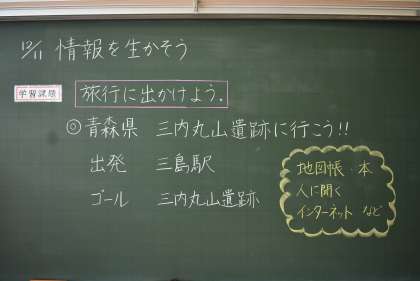 12/11 情報を生かそう
学習課題 旅行に出かけよう.
◎青森県 三内丸山遺跡に行こう!!
出発 三島駅
ゴール 三内丸山遺跡
地図帳・本
人に聞く
インターネット など